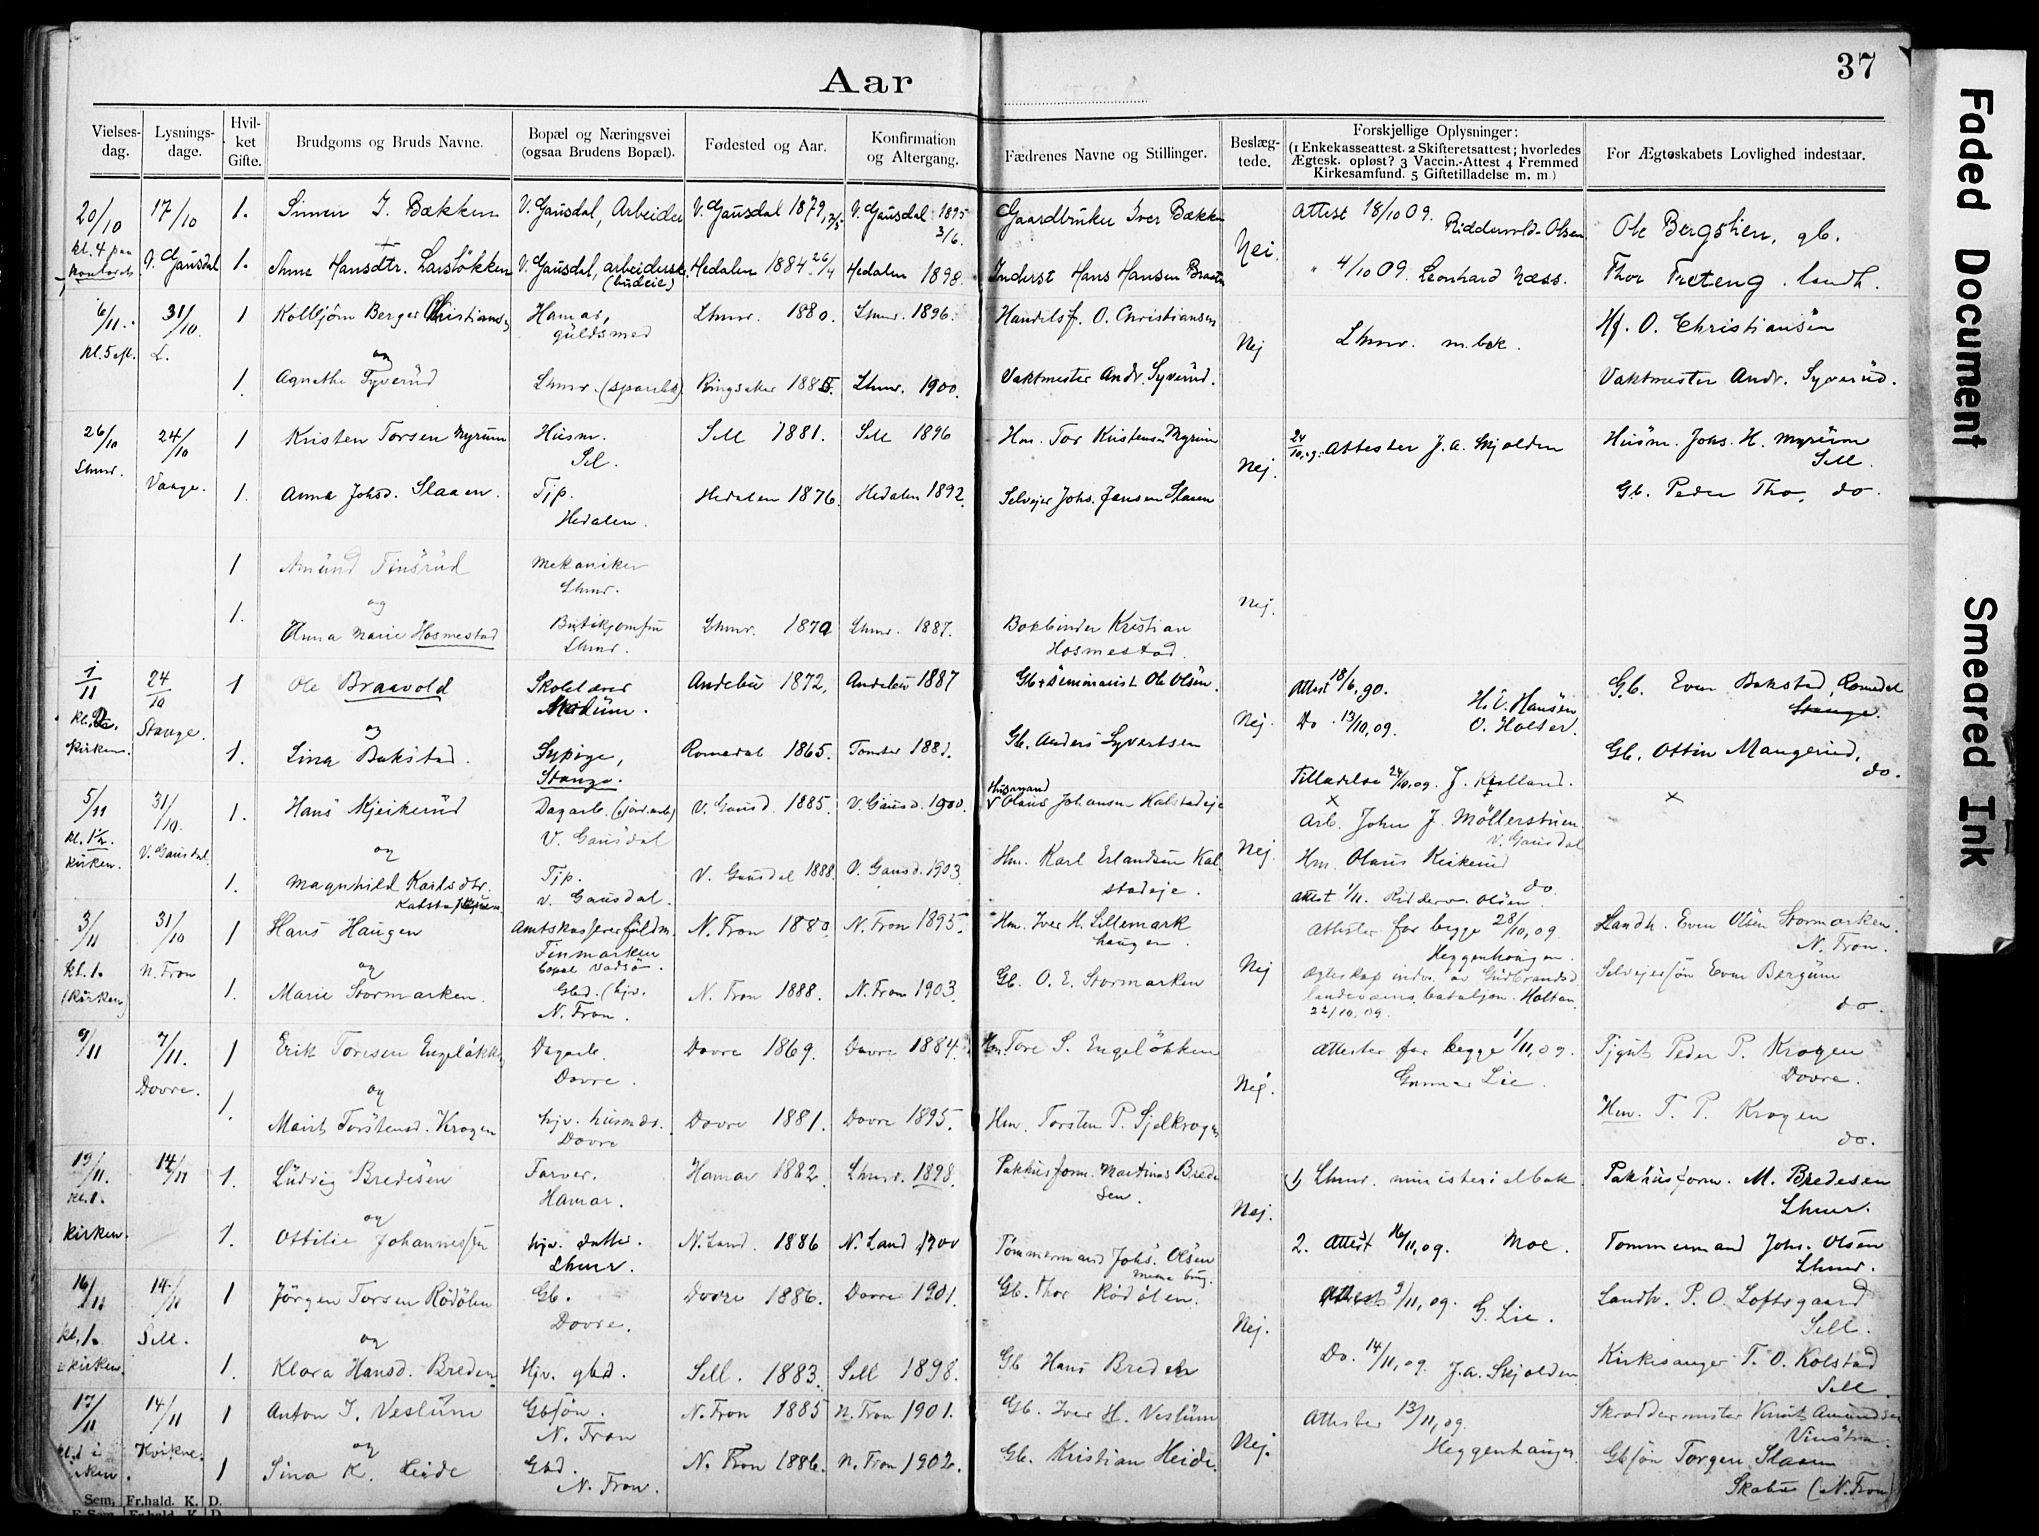 Aar
37
Vielses-dag.
Lysnings-dage.
Hvil-ket Gifte.
Brudgoms og Bruds Navne.
Bopæl og Næringsvei (ogsaa Brudens Bopæl).
Fødested og Aar.
Konfirmation og Altergang.
Fædrenes Navne og Stillinger.
Beslæg-tede.
Forskjellige Oplysninger:
(1 Enkekasseattest. 2 Skifteretsattest; hvorledes Ægtesk. opløst? 3 Vaccin.-Attest 4 Fremmed Kirkesamfund. 5 Giftetilladelse m. m.)
For Ægteskabets Lovlighed indestaar.
20/10 17/10 1. Simen J. Bækken V. Gausdal, Arbeider V. Gausdal 1879, V. Gausdal 1895 3/6. Gaardbruker Iver Bækken Attest 18/10 09. Riddervold-Olsen Ole Bergslien, gb.
kl. 4 paa kontoret V. Gausdal 1. Anne Hansdtr. Larsløkken V. Gausdal, arbeidersk. (budeie) Hedalen 1884 26/4 Hedalen 1898. Inderst Hans Hansen Nei. " 4/10 09. Leonhard Næss. Thor Treteng, landh.
6/11. 31/10 1 Kolbjörn Berger Christiansen Hamar, guldsmed Lhmr. 1880. Lhmr. 1896. Handelsf. O. Christiansen Hf. O. Christiansen
kl. 5 eft. L. og Nej Lhmr. m.bok.
1. Agnethe Syverud Lhmr. Ringsaker Lhmr. 1900. Vaktmester Andr. Syverud. Vaktmester Andr. Syverud.
26/10 24/10 1 Kristen Torsen Myrum Husm. Sel. Sell 1881. Sell 1896 Hm. Tor Kristensen Myrum 24/10,09. Attester J. A. Skjolden Husm. Johs. H. Myrum Sell.
Lhmr. Vaage. 1. Anna Johsd. Slaaen. Tjp. Hedalen. Hedalen 1876. Hedalen 1892. Selvejer Johs. Jansen Slaaen Nej. Gb. Peder Tho, do.
1 Amund Finsrud Mekaniker Lhmr.
og Nej.
1. Anna Marie Hosmestad Butikjomfru Lhmr. Lhmr. 1872 Lhmr. 1887. Bokbinder Kristian Hosmestad.
1/11 24/10 1 Ole Braavold Skolelærer Modum. Andebu 1872, Andebu 1887 Gb. + seminarist Ole Olsen. Attest 18/6, 90. H. V. Hansen G.b. Even Bakstad, Romedal Stange.
Stange. og Nej. Do. 13/10, 09. O. Holter.
kirken. 1. Lina Bakstad. Sypige, Stange. Romedal 1865. Tomter 1881. Gb. Anders Syvertsen Gb. Ottin Mangerud, do.
Tilladelse 24/10, 09. J. Kjelland.
5/11 31/10 1. Hans Kjeikerud Dagarb. (jord.arb.) V. Gausdal V. Gausd. 1885. V. Gausd. 1900. Husmand Olaus Johansen Kalstadeje × Arb. John J. Möllerstuen V. Gausdal ×
kl. 1½. kirken. V. Gausdal. og Nej. Hm. Olaus Kirkerud do.
1. Magnhild Karlsdtr. Tjp. V. Gausdal. V. Gausdal 1888. V. Gausd. 1903. Hm. Karl Erlandsen Kalstadeje. Attest 1/11. Ridderv. Olsen
3/11 31/10 1 Hans Haugen Amtskassererfuldm. Finmarken bopæl Vadsø. N. Fron 1880. N. Fron 1895. Hm. Iver H. Sillemarkhaugen. Attester for begge 28/10, 09. Heggenhougen. Landh. Even Olsen Stormarken. N. Fron.
kl. 1. (kirken) N. Fron og Nej Ægteskap indv. av Gudbrandsd. landeværns bataljon. Holtan 22/10, 09.
1. Marie Stormarken. Gbd. (hjv. N. Fron. N. Fron 1888. N. Fron 1903. Gb. O. E. Stormarken Selvejersøn Even Bergum do.
9/11 7/11. 1 Erik Toresen Engeløkken Dagarb. Dovre. Dovre 1869. Dovre 1884. Hm. Tore S. Engeløkken Attester for begge 1/11, 09. Gunnar Lie. Tjgut Peder P. Krogen Dovre.
Dovre. og Nej.
1. Marit Torstensd. Krogen hjv. husmds. Dovre Dovre 1881. Dovre 1895. Hm. Torsten P. Sjelkrogen Hm. T. P. Krogen do.
19/11. 14/11 1. Ludvig Bredesen Farver. Hamar. Hamar 1882. Lhmr. 1898. Pakhusform. Martinus Bredesen. 1) Lhmr. ministerialbok Pakhusform. M. Bredesen Lhmr.
kl. 1. kirken. og Nej.
1. Ottilie Johannessen hjv. datter. Lhmr. N. Land. 1886 N. Land 1900 Tømmermand Johs. Olsen 2. Attest 16/11, 09. Moe. Tømmermand Johs. Olsen Lhmr.
16/11 14/11 1 Jörgen Torsen Rödölen Gb. Dovre. Dovre 1886. Dovre 1901. Gb. Thor Rödölen. Attest 9/11, 09. G. Lie. Landh. P. O. Loftsgaard Sell.
kl. 1. kirken. Sell. og Nej.
1. Klara Hansd. Breden Hjv. gbd. Sell. 1883. Sell 1898. Gb. Hans Breden Do. 14/11, 09. J. A. Skjolden. Kirkesanger T. O. Kolstad Sell.
17/11 14/11 1 Anton J. Veslum Gbsøn. N. Fron N. Fron 1885 N. Fron 1901. Gb. Iver H. Veslum Attester 13/11, 09. Heggenhaugen Skræddermester Amundsen Vinstra.
kl. 1 i Kvikne. og Nej.
1 Sina K. Heide Gbd. N. Fron. N. Fron 1886. N. Fron 1902. Gb. Kristian Heide. Gbsøn Torgeir Slaaen Skabu (N. Fron)
Sem. Fr.hald. K. D.
Faded Document
Smeared Ink